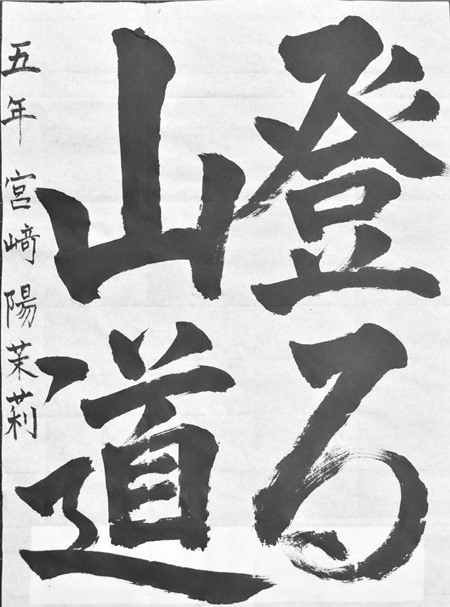 登る
山道
五年 宮﨑陽茉莉